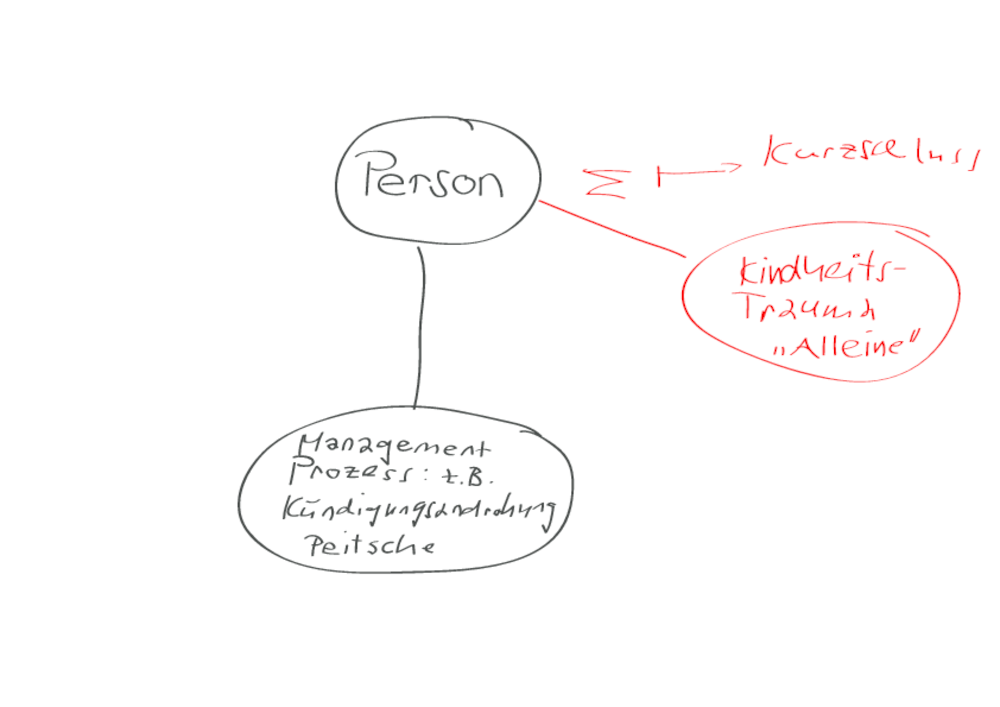 Person
Σ ↦ Kurzschluss
Kindheits-
Trauma
„Alleine"
Management
Prozess: z.B.
Kündigungsandrohung
Peitsche